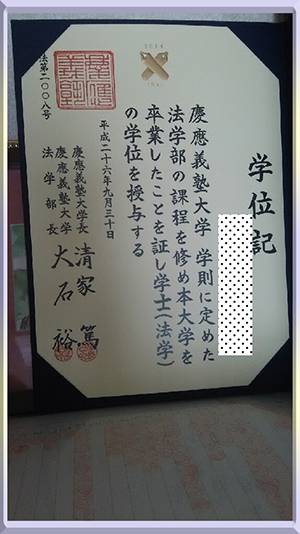 学位記
慶應義塾大学 学則に定めた
法学部の課程を修め本大学を
卒業したことを証し学士(法学)
の学位を授与する
平成二十六年九月三十日
慶應義塾大学長 清家 篤
慶應義塾大学
法学部長 大石 裕
法第二〇〇八号